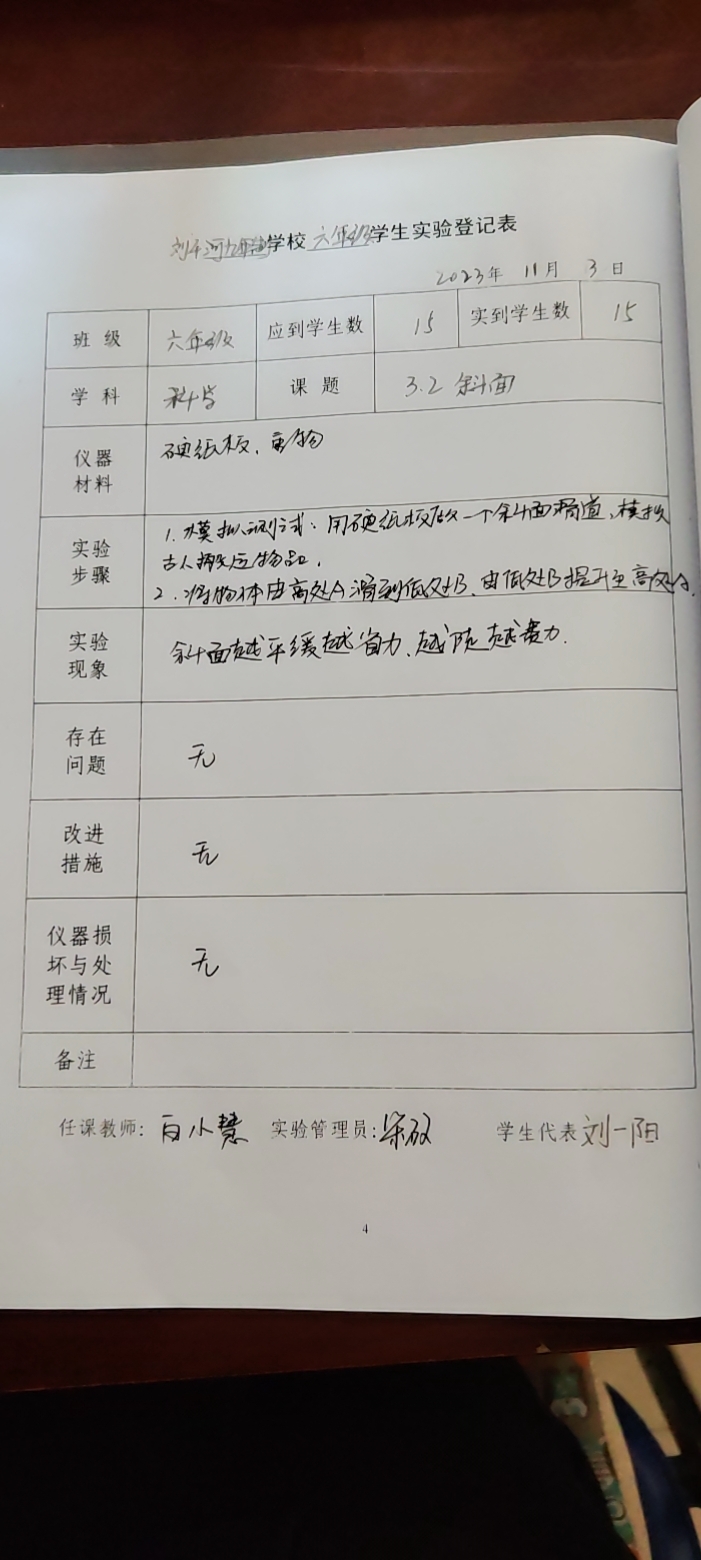 刘平河九年制学校六年级学生实验登记表
2023年 11月 3日
班 级 六年级 应到学生数 15 实到学生数 15
学 科 科学 课 题 3.2 斜面
仪器材料 硬纸板、重物
实验步骤 1. 模拟测试:用硬纸板做一个斜面隧道,模拟
古人搬运物品.
2. 将物体由高处A滑到低处B、由低处B提升至高处A.
实验现象 斜面越平缓越省力、越陡越费力.
存在问题 无
改进措施 无
仪器损坏与处理情况 无
备注
任课教师:白小慧 实验管理员: 学生代表刘一阳
4